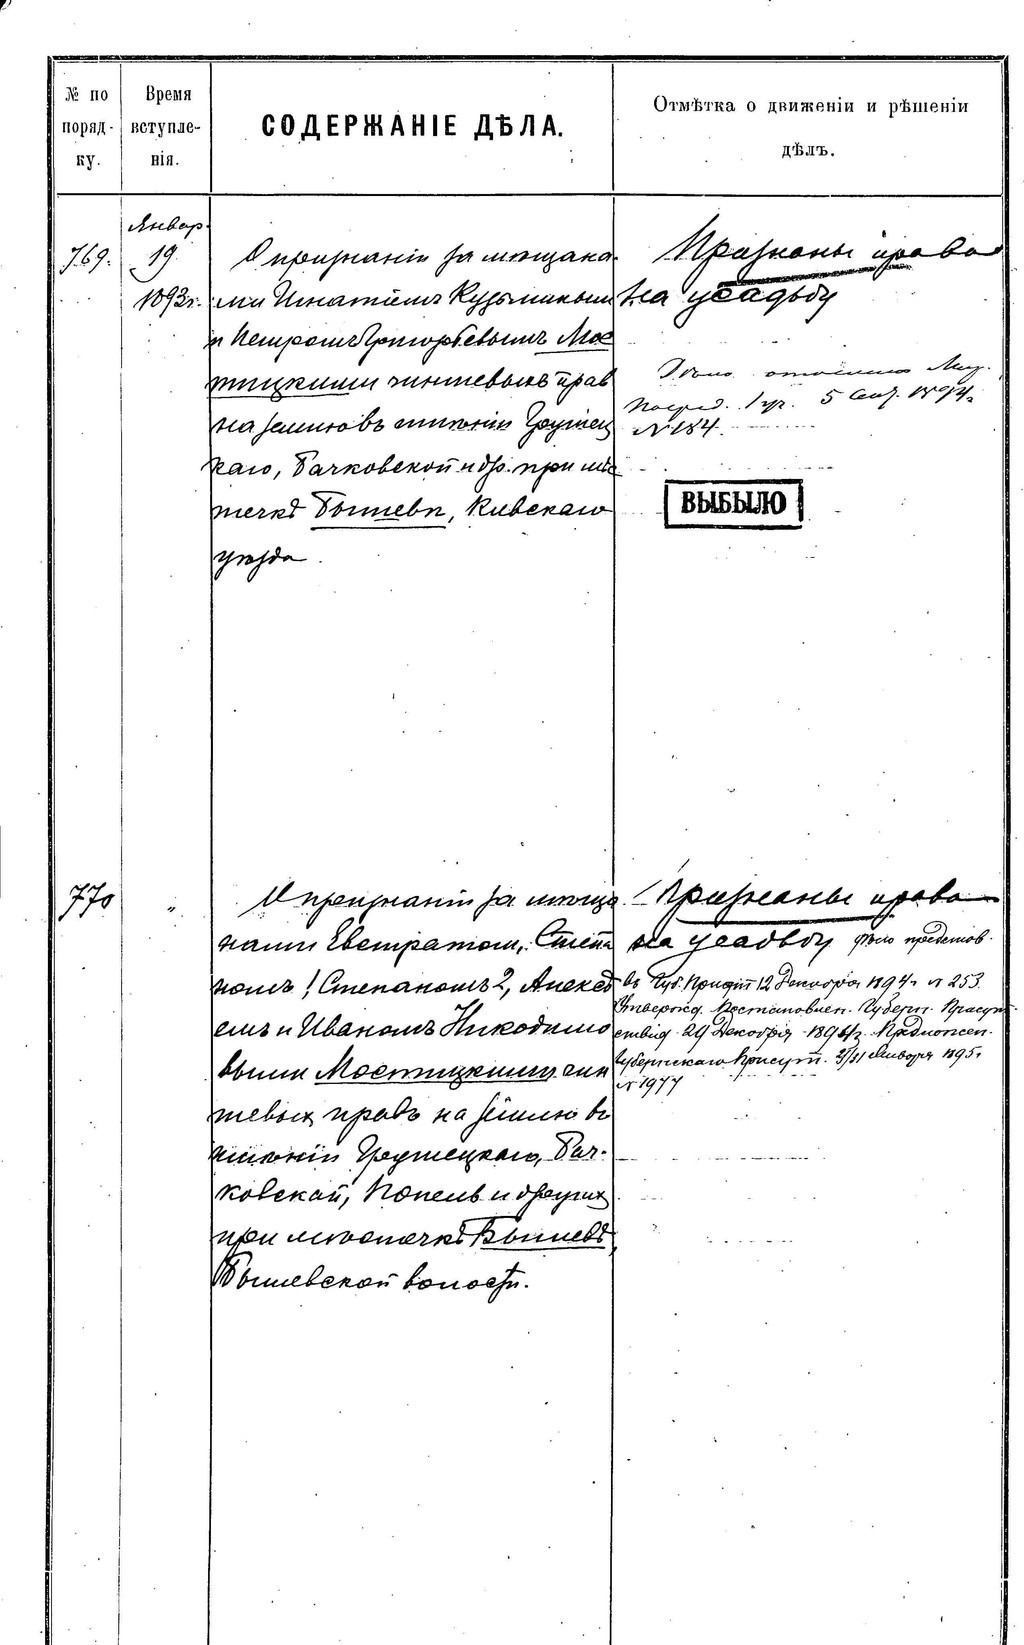 № по поряд- ку.
Время вступле- нія.
СОДЕРЖАНІЕ ДѢЛА.
Отмѣтка о движеніи и рѣшеніи дѣлъ.
Январ.
769.
19
1893 г.
О признаніи за мѣщана-
ми Игнатіемъ Кузьминымъ
и Петромъ Григорьевымъ Мос
тицкими чиншевыхъ прав
на землю въ имѣніи Грушец
каго, Бачковской и др. при мѣс
течкѣ Бышевѣ, Кіевскаго
уѣзда.
Признаны права
на усадьбу
Дѣло отослано Мир.
Посред. 1 уч. 5 Сент. 1894 г.
№ 184.
ВЫБЫЛО
770
"
О признаніи за мѣща
нами Евстратом, Степа
номъ 1, Степаномъ 2, Алексѣ
емъ и Иваномъ Никодимо
выми Мостицкими чин
шевых правъ на землю въ
имѣніи Грушецкаго, Бач-
ковской, Копель и других
при мѣстечкѣ Бышевѣ,
Бышевской волости.
Признаны права
на усадьбу Дѣло представ.
въ Губ. Присут 12 Декабря 1894 г. № 253.
Утвержд. Постановлен. Губерн. Присут
ствія 29 Декабря 1894 г. Предложен.
Губернскаго Присут. 31 Января 1895 г.
№ 1977